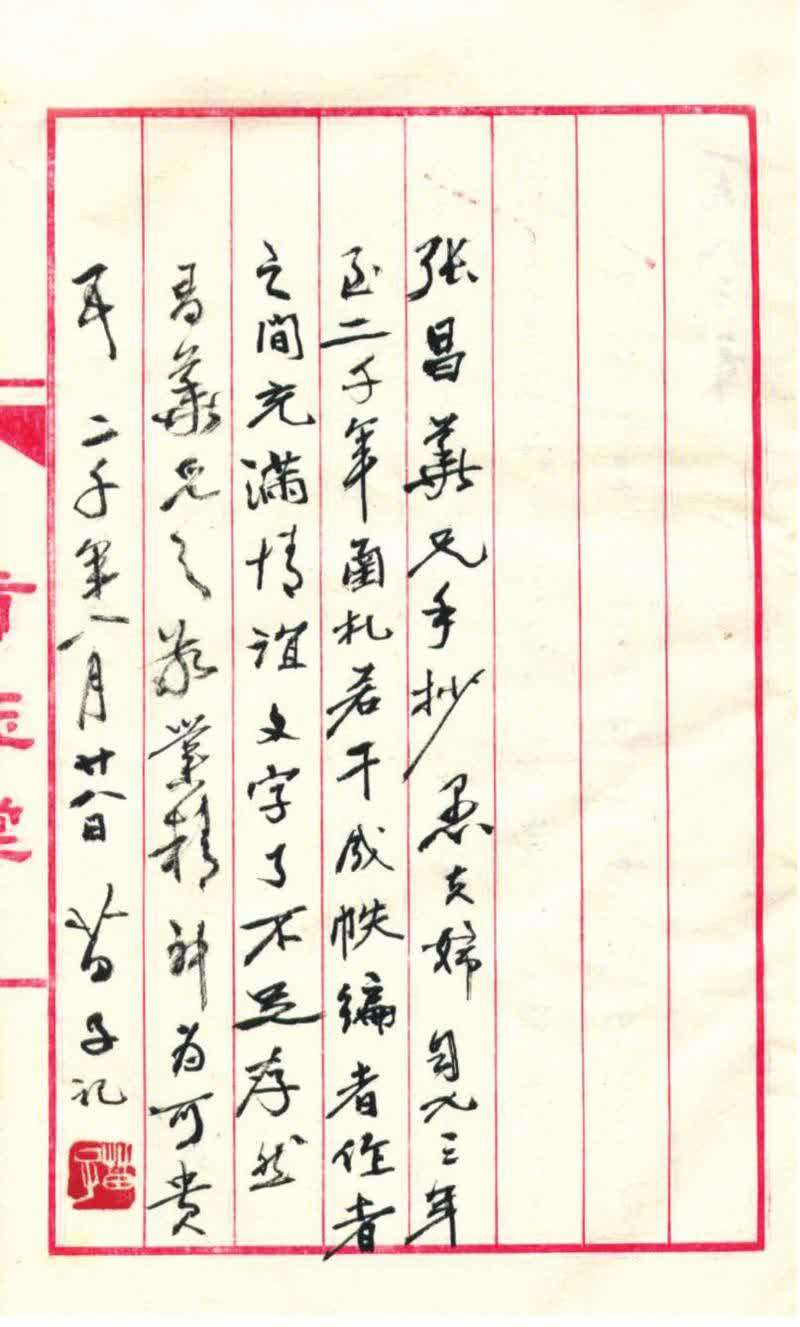 张昌華兄手抄愚夫婦自九三年
至二千年函札若干成帙編者作者
之間充滿情谊文字了不足存然
昌華兄之敬業精神为可貴
耳 二千年八月廿八日 苗子记
苗子